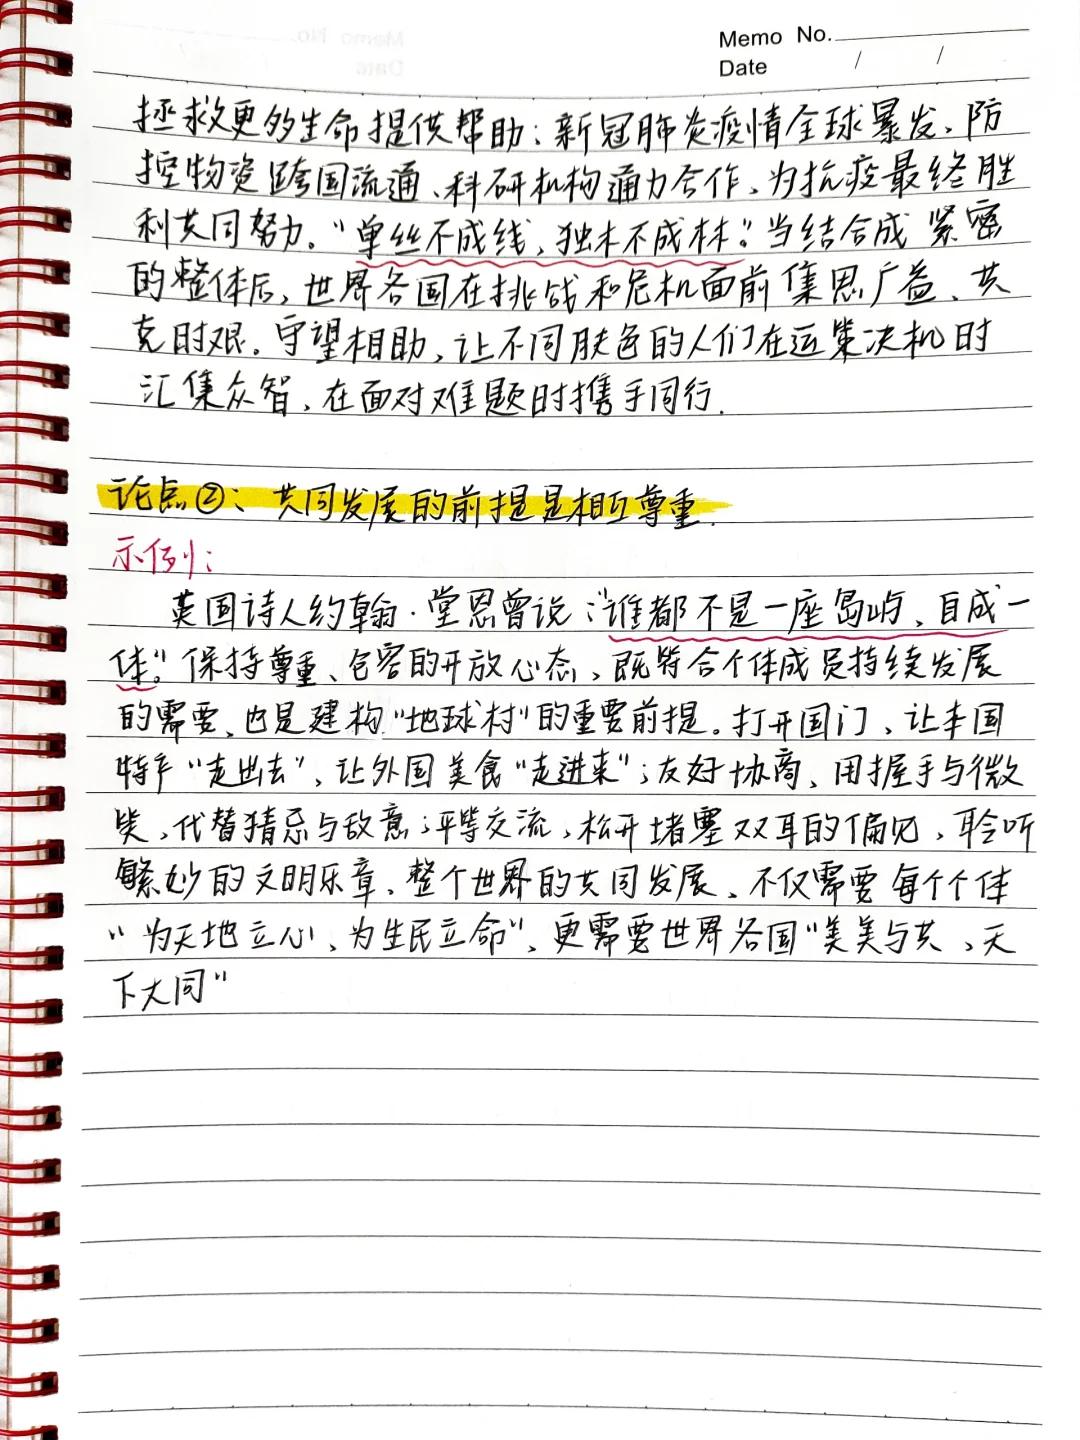 Memo No.
Date / /
拯救更多生命提供帮助；新冠肺炎疫情全球暴发，防
控物资跨国流通、科研机构通力合作，为抗疫最终胜
利共同努力。“单丝不成线，独木不成林”。当结合成紧密
的整体后，世界各国在挑战和危机面前集思广益、共
克时艰。守望相助，让不同肤色的人们在运策决机时
汇集众智，在面对难题时携手同行.
论点②：共同发展的前提是相互尊重.
示例：
英国诗人约翰·堂恩曾说：“谁都不是一座岛屿，自成一
体。”保持尊重、包容的开放心态，既符合个体成员持续发展
的需要，也是建构“地球村”的重要前提。打开国门，让本国
特产“走出去”，让外国美食“走进来”；友好协商，用握手与微
笑，代替猜忌与敌意；平等交流，松开堵塞双耳的偏见，聆听
繁妙的文明乐章、整个世界的共同发展，不仅需要每个个体
“为天地立心，为生民立命”，更需要世界各国“美美与共，天
下大同”